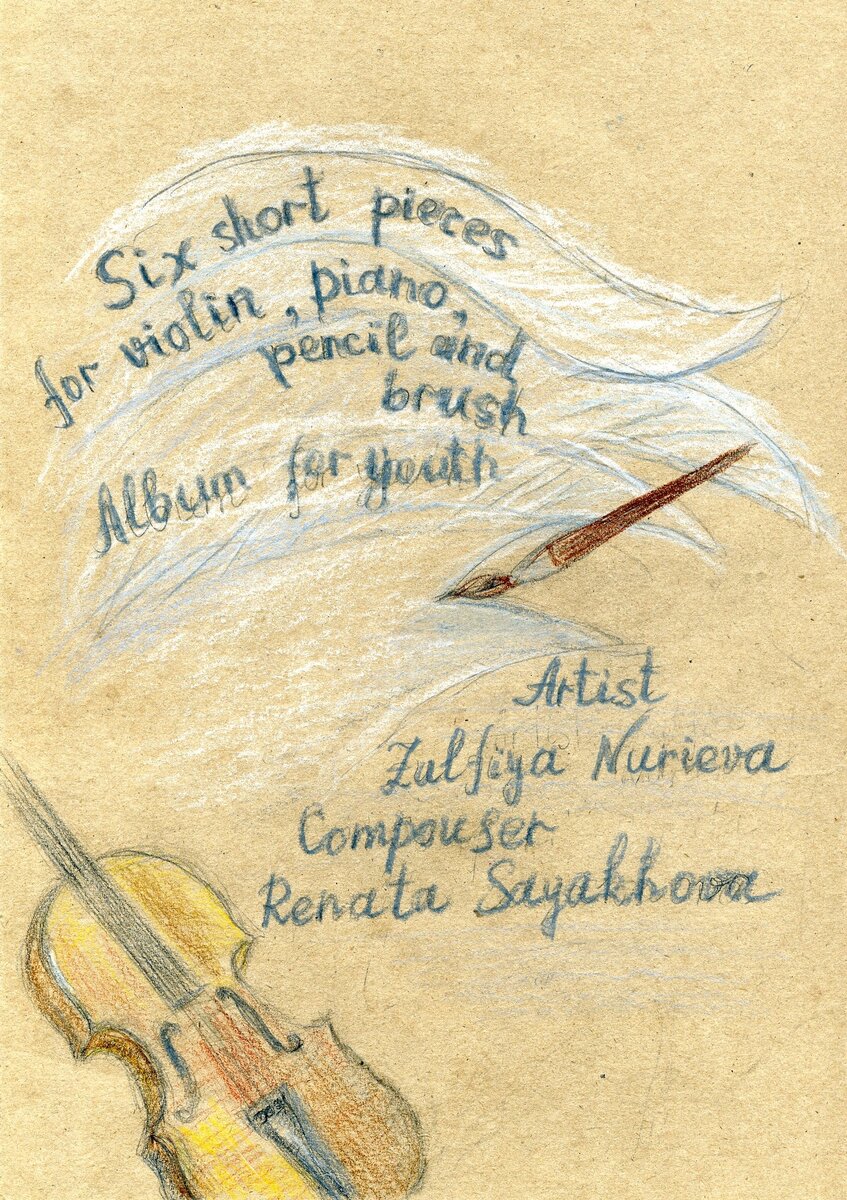 Six short pieces
for violin, piano,
pencil and
brush
Album for youth
Artist
Zulfiya Nurieva
Compouser
Renata Sayakhova